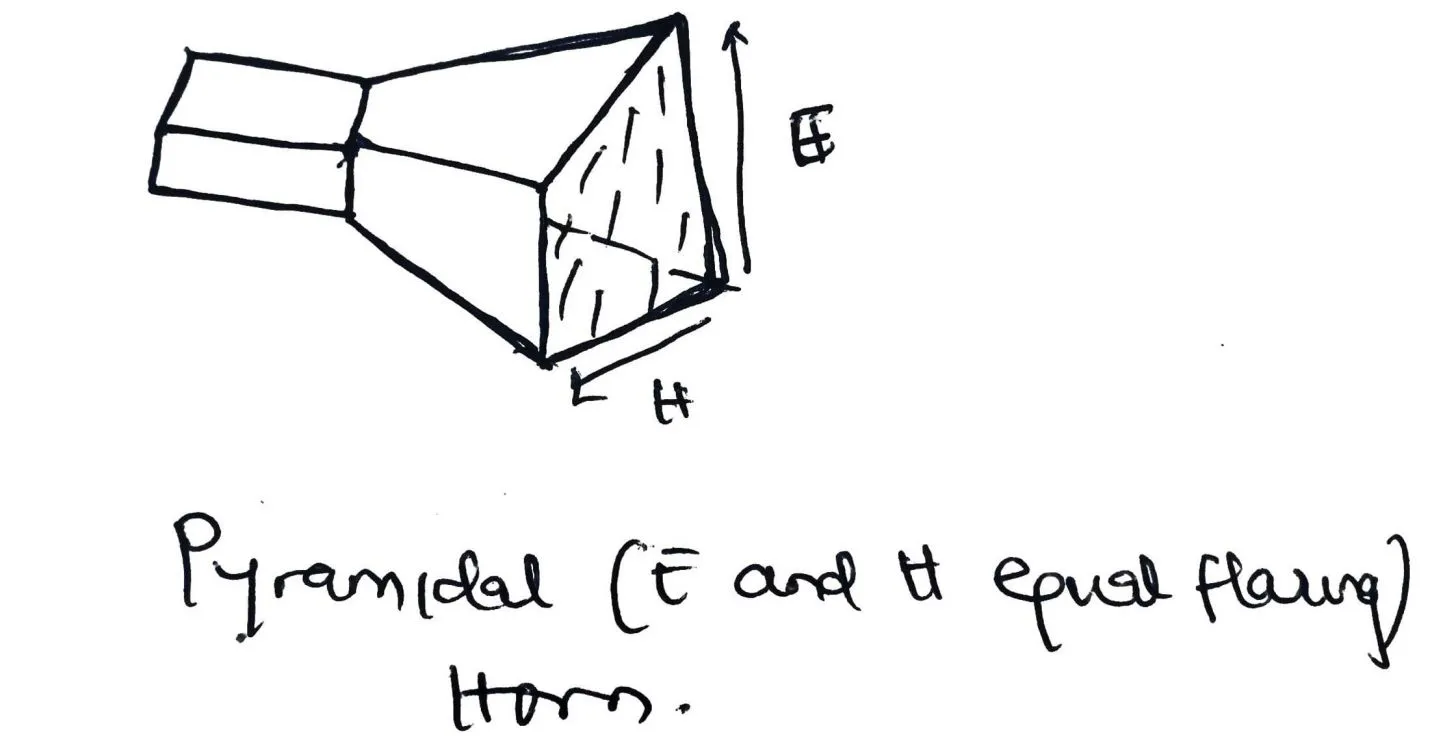 E
H
Pyramidal (E and H equal flaring)
Horn.